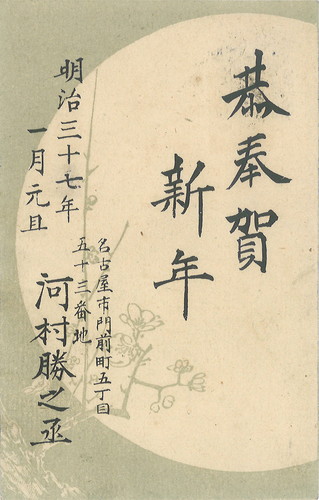 恭奉賀
新年
明治三十七年
一月元旦
名古屋市門前町五丁目
五十三番地
河村勝之丞